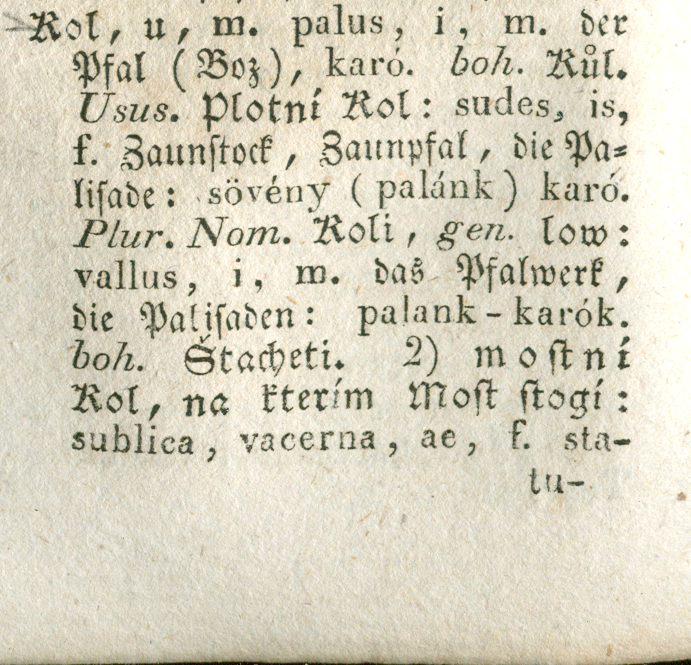 Kol, u, m. palus, i, m. der
Pfal (Boz), karó. boh. Kůl.
Usus. Plotní Kol: sudes, is,
f. Zaunſtock, Zaunpfal, die Pa⸗
liſade: sövény (palánk) karó.
Plur. Nom. Koli, gen. low:
vallus, i, m. das Pfalwerk,
die Paliſaden: palank-karók.
boh. Štacheti. 2) moſtní
Kol, na kterím Moſt ſtogí:
sublica, vacerna, ae, f. sta-
tu-